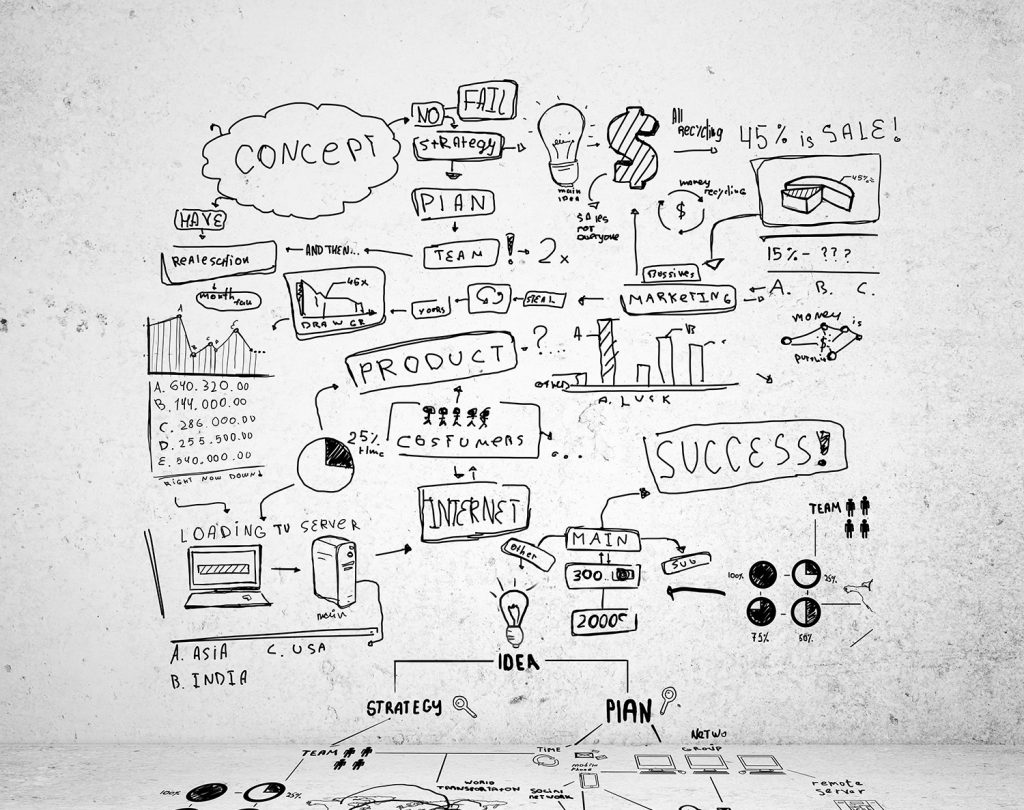 FAIL
NO
CONCEPT
STRATEGY
All
RECYCLING
45% is SALE!
main
idea
$
money
recycling
45%
PLAN
HAVE
SALES
not
everyone
$
TEAM ! 2x
AND THEN...
15% - ???
MARKETING
A. B. C.
month
45x
years
MONEY
is
$
PRODUCT ?
A
A
B
C
D
E
A. 640.320.00
B. 144.000.00
C. 286.000.00
D. 255.500.00
E. 540.000.00
RIGHT NOW DOWN
25%
time
COSTUMERS
...
A. LUSK
SUCCESS!
INTERNET
LOADING TV SERVER
main
Other
MAIN
SUB
300
2000
TEAM
100%
25%
75%
50%
A. ASIA C. USA
B. INDIA
IDEA
STRATEGY
PLAN
TEAM
TIME
NETWO
GROUP
mobile
phone
100%
25%
WORLD
TRANSPORTATION
SOCIAL
NETWORK
remote
server